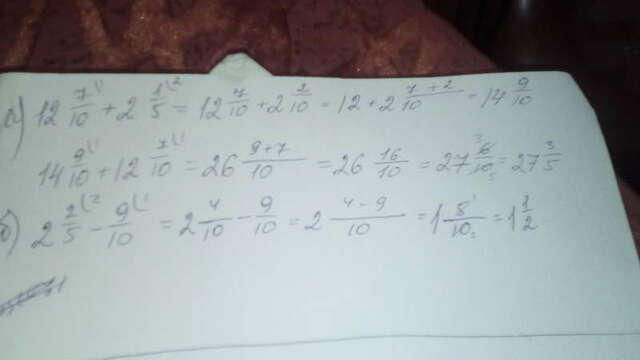 а) 12 7/10 + 2 1/5 = 12 7/10 + 2 2/10 = 12 + 2 7+2/10 = 14 9/10
14 9/10 + 12 7/10 = 26 9+7/10 = 26 16/10 = 27 6/10 = 27 3/5
б) 2 2/5 - 9/10 = 2 4/10 - 9/10 = 2 4-9/10 = 1 5/10 = 1 1/2